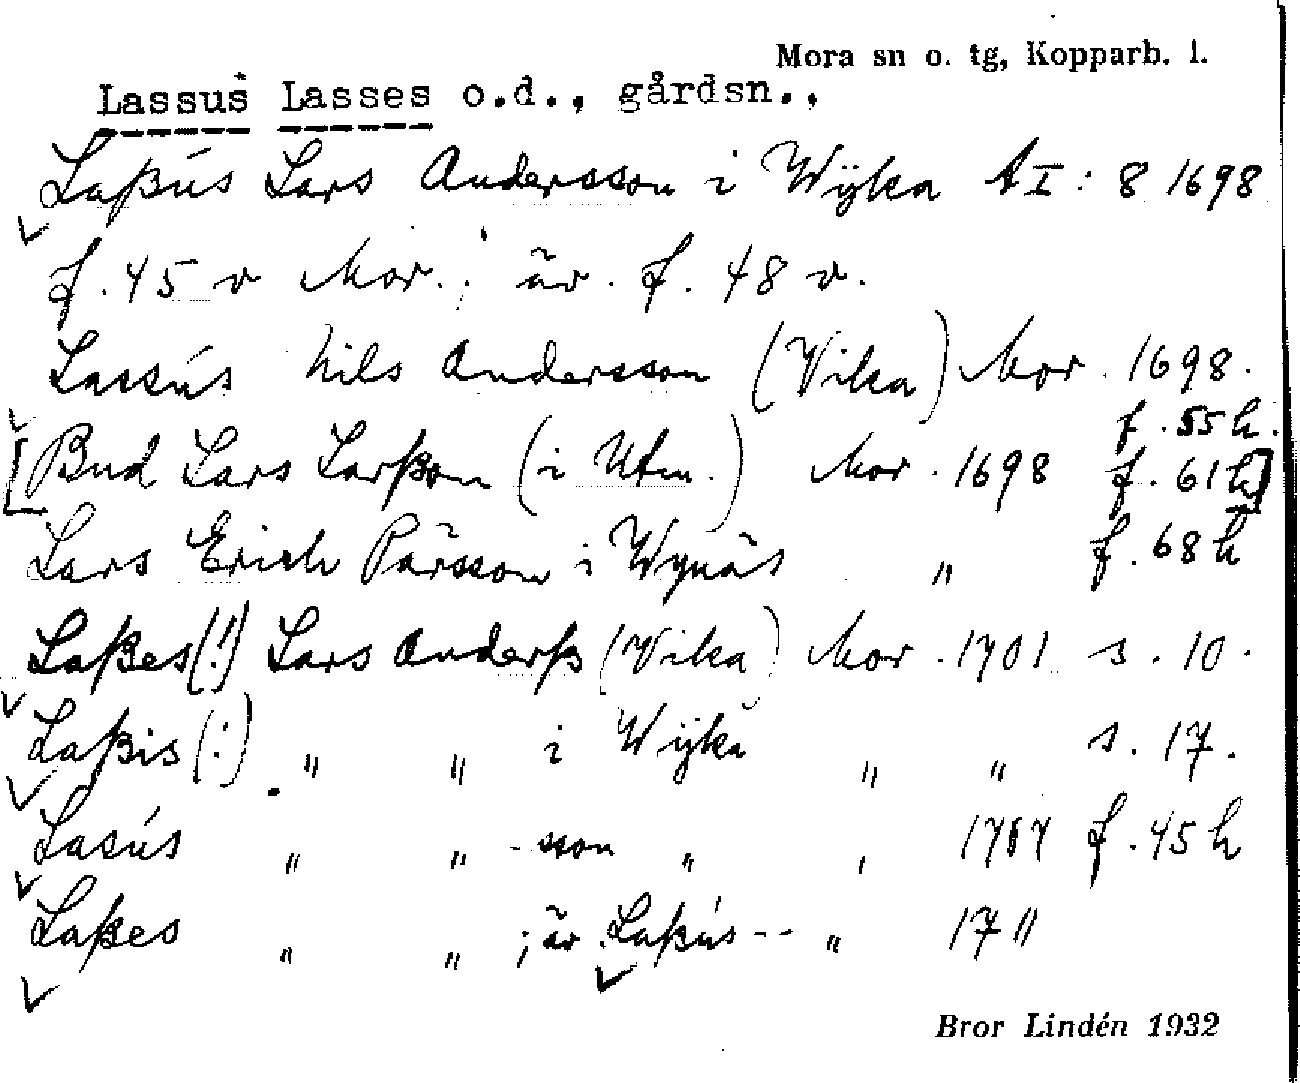 Mora sn o. tg, Kopparb. l.
Lassus* Lasses o.d., gårdsn.,
Laßús Lars Andersson i Wÿka A I: 8 1698
f. 45 v Mor.; äv. f. 48 v.
Lassús Nils Andersson (Vika) Mor. 1698.
f. 55 h.
[Bud Lars Larßon (i Utm.) Mor. 1698 f. 61 h]
Lars Erich Pärsson i Wynäs " f. 68 h
Laßes(!) Lars Anderß (Vika) Mor. 1701 s. 10.
Laßis(!) " " i Wÿka " " s. 17.
Lasús " " -sson " , 1707 f. 45 h
Laßes " " ; äv. Laßús -- " 1711
Bror Lindén 1932